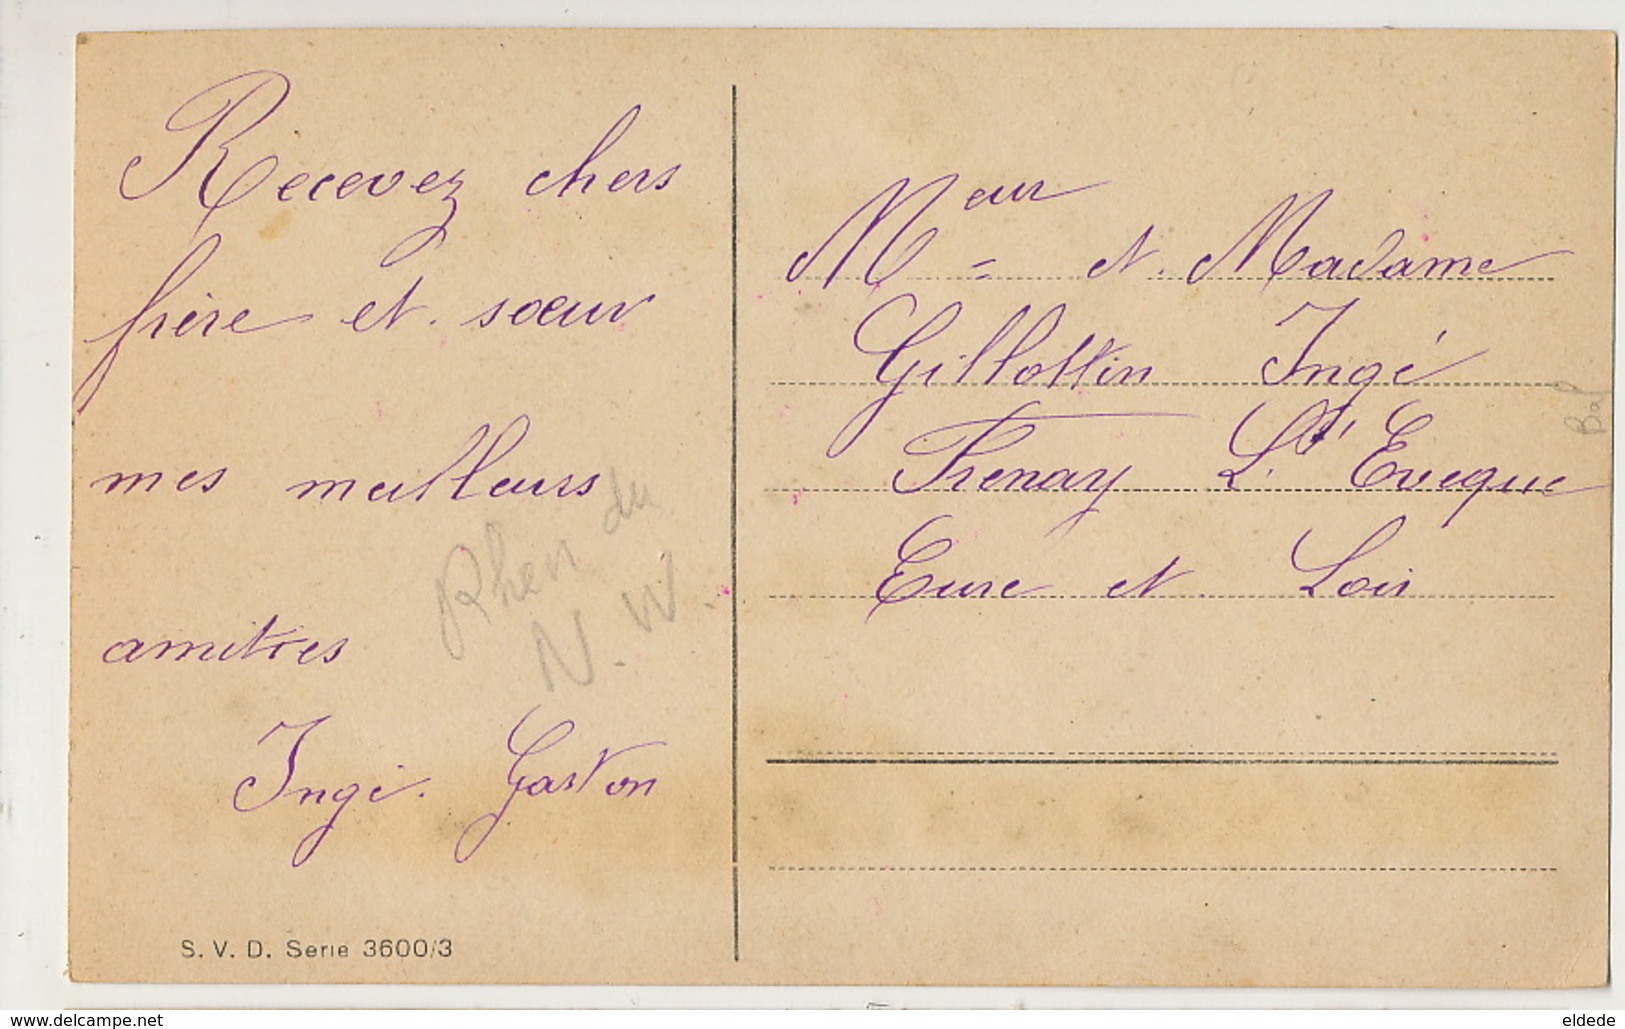 Recevez chers
frère et. sœur
mes meilleurs
amitiés
Ingé. Gaston
Rhen du
N. W.
S. V. D. Serie 3600/3
Meur = et. Madame
Gillottin Ingé
Frenay L'Eveque
Eure et Loir
Bal
www.delcampe.net
eldede